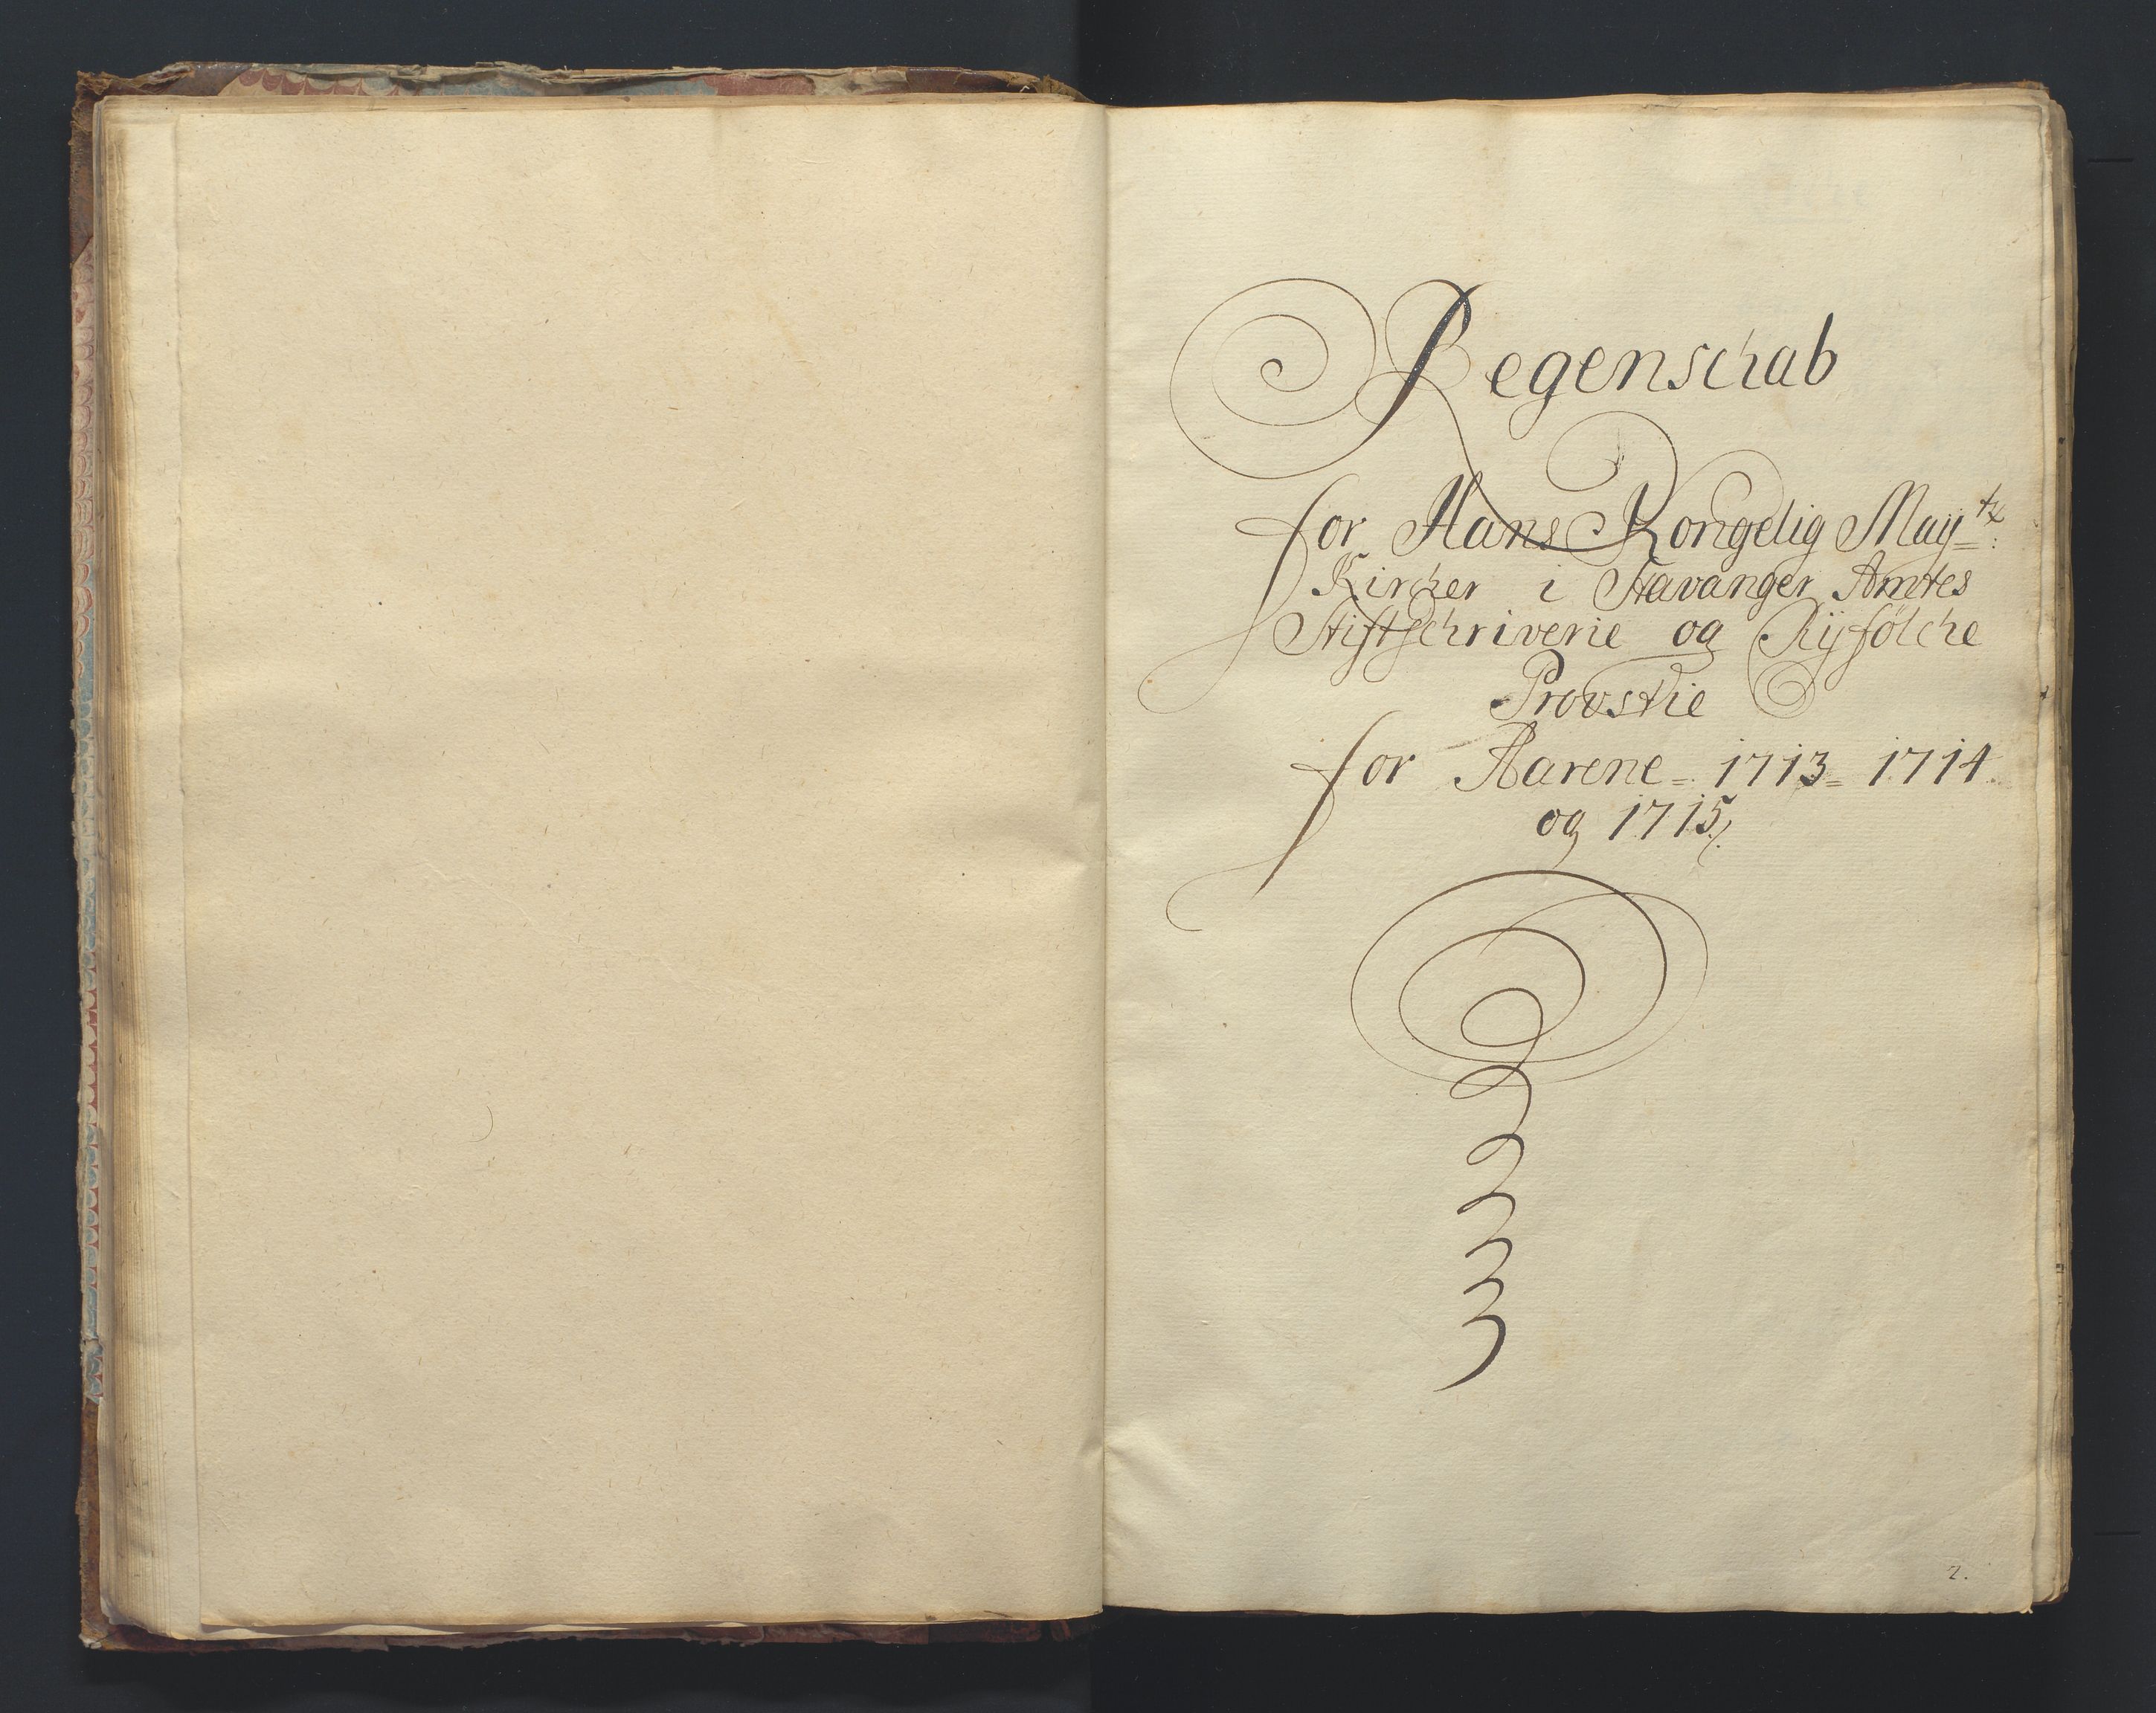 Regenschab
for Hans Kongelig May<sup>tz</sup>:
Kircher i Stavanger Amtes
Stiftschriverie og Ryfölche
Provstie
for Aarene = 1713 = 1714
og 1715
2.